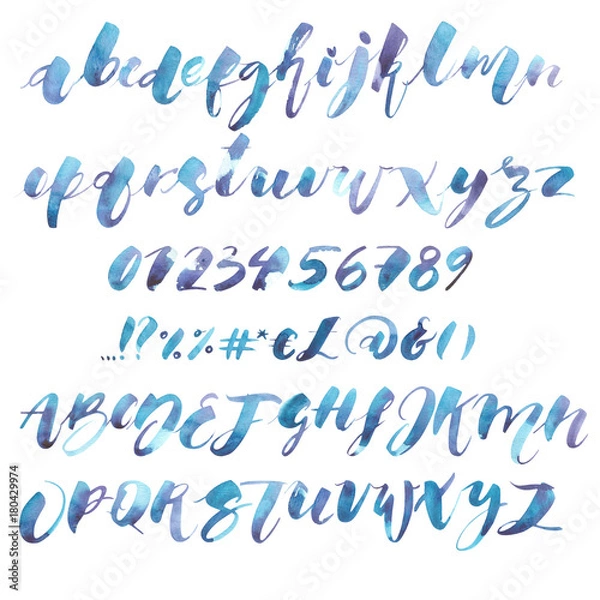 abcdefghijklmn
opqrstuvwxyzz
0123456789
...!?%%#*€£@&()
ABCDEFGHIJKmn
OPQRSTUVWXYZ
Adobe Stock | #180429974